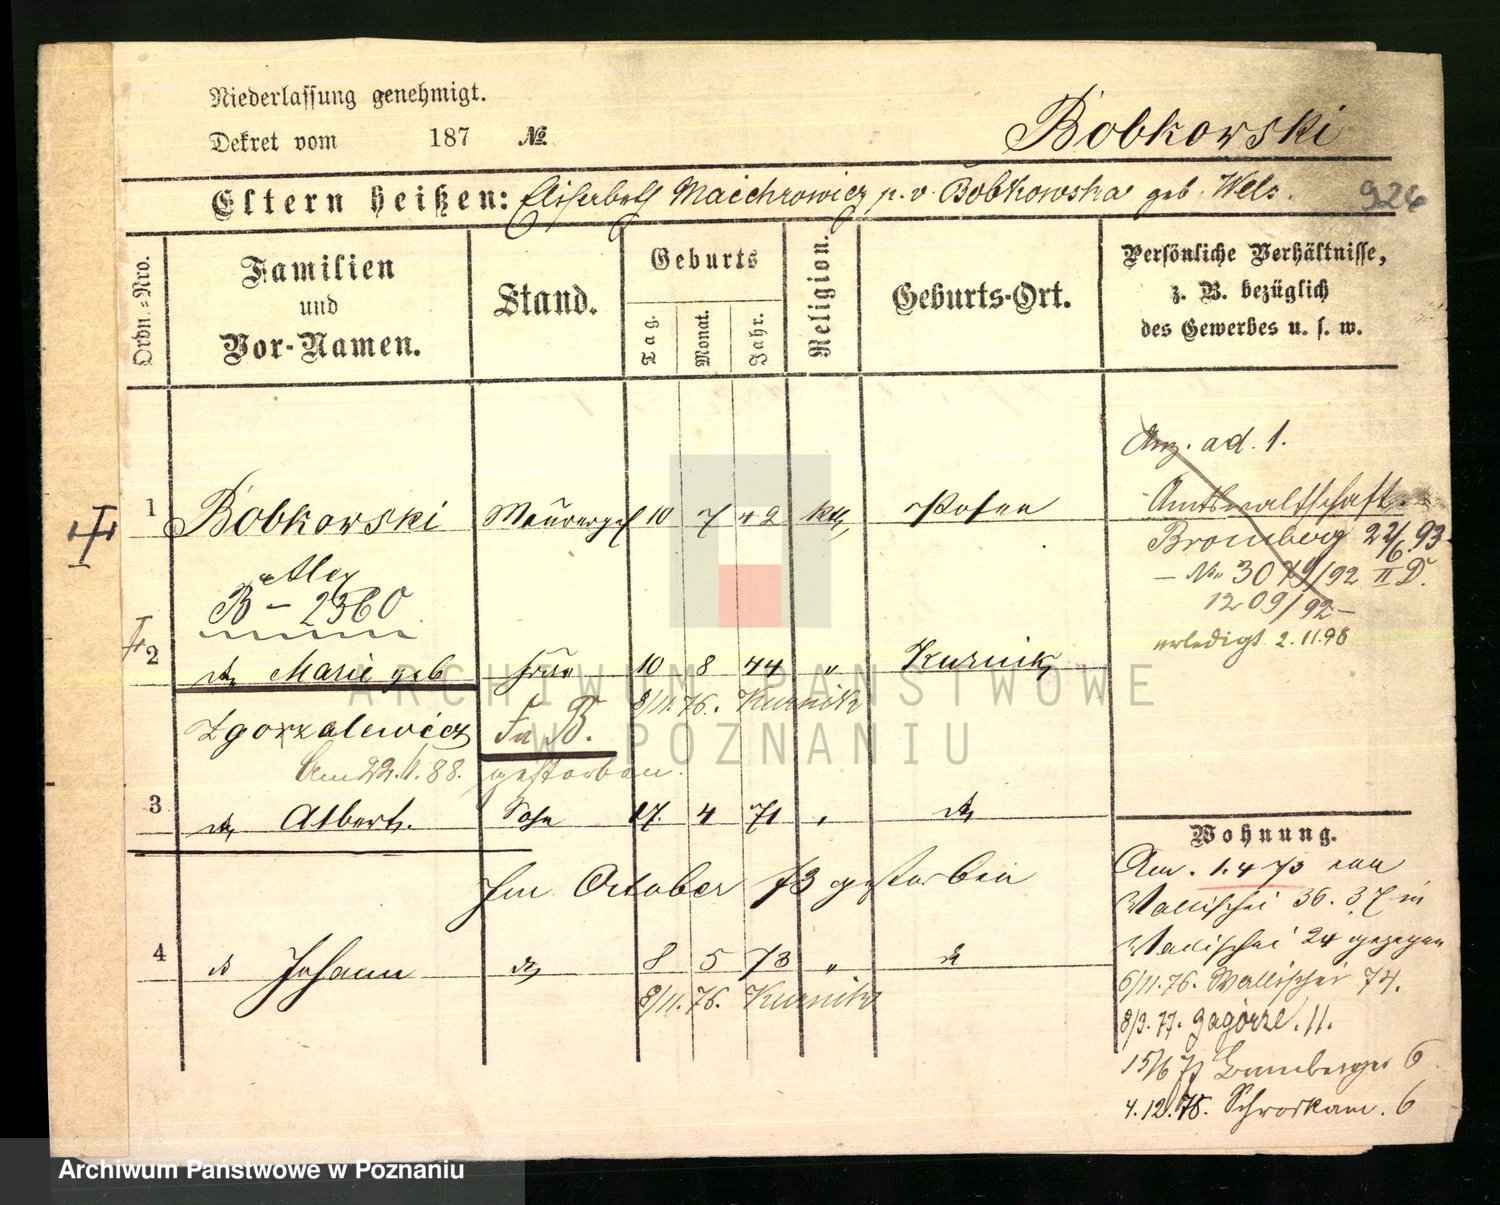 Niederlassung genehmigt.
Dekret vom 187 №
Bobkowski
Eltern heißen: Elisabeth Maichrowicz p. v. Bobkowska geb. Wels. 926
Ordn.-Nro.
Familien und Vor-Namen.
Stand.
Geburts
Tag.
Monat.
Jahr.
Religion.
Geburts-Ort.
Persönliche Verhältnisse,
z. B. bezüglich
des Gewerbes u. s. w.
Anz. ad. 1.
1 Bobkowski Maurerges 10 7 42 kth. Posen
Amtsanwaltschaft
Bromberg 22/6 93
№ 3079/92 II D.
1209/92
erledigt 2.11.98
Alex
B - 2360
2 do Marie geb Frau 10 8 44 " Kurnik
8/11.76. Kurnik
Zgorzalewicz Fr B.
Am 22.1.88. gestorben.
3 do Albert. Sohn 17. 4 71 " do
Im October 73 gestorben
4 do Johann do 8 5 73 " do
8/11.76. Kurnik
Wohnung.
Am 1.4 73 von
Wallischei 36.37 in
Wallischei 24 gezogen
6/11.76. Wallischei 74.
8/3.77. Zagorze. 11.
15/6 Bamberger 6
4.12.78. Schrodkam. 6
ARCHIWUM PAŃSTWOWE
W POZNANIU
Archiwum Państwowe w Poznaniu